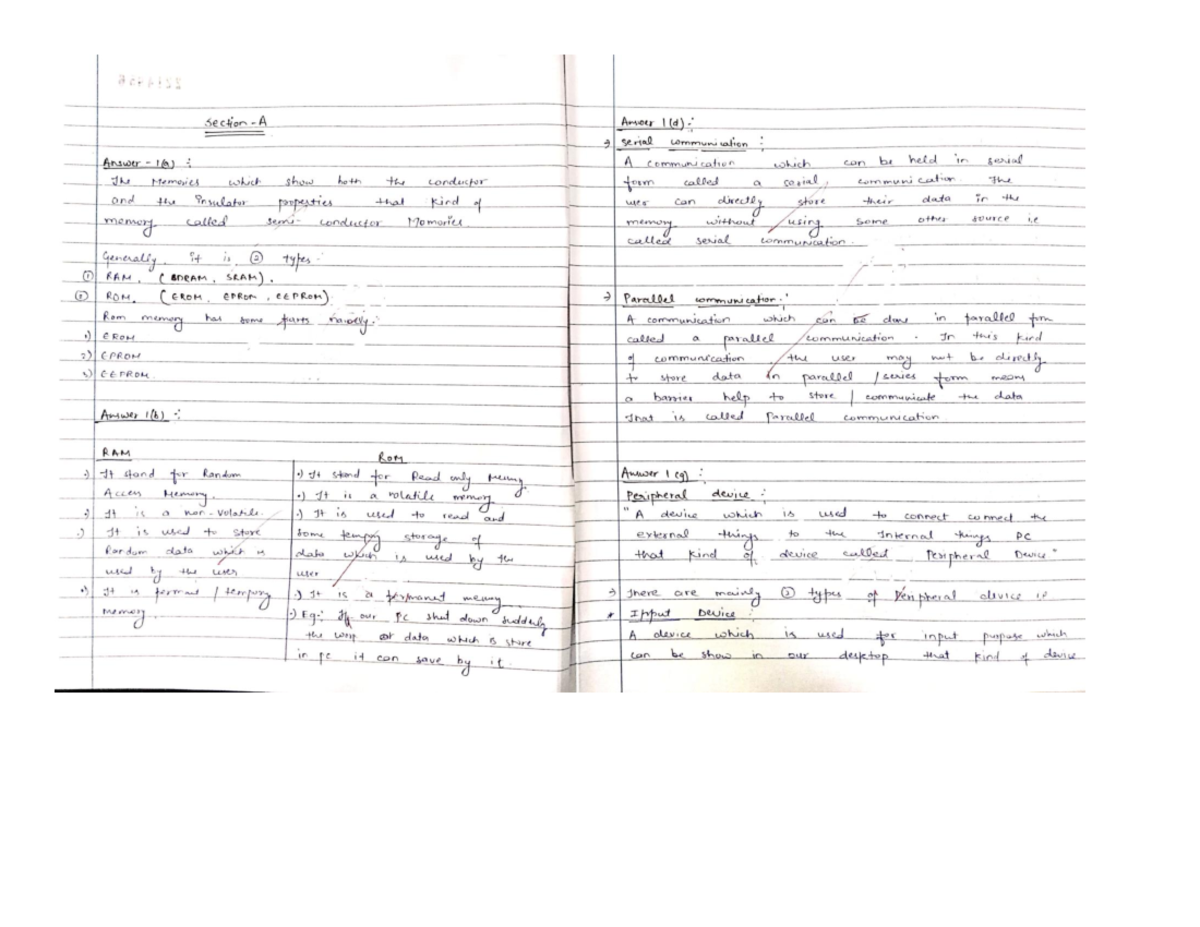 Section - A
Answer - 1(a) :
The Memories which show both the conductor
and the insulator properties that kind of
memory called semi-conductor Memories.
Generally it is ② types.
① RAM. (DRAM, SRAM).
② ROM. (EROM, EPROM, EEPROM)
Rom memory has some parts mainly:
1) EROM
2) EPROM
3) EEPROM.
Answer 1(b) :
RAM
.) It stand for Random
Access Memory.
.) It is a non-volatile.
.) It is used to store
Random data which is
used by the user
.) It is permant / tempory
memory.
ROM
.) It stand for Read only
.) It is a volatile memory
.) It is used to read and
some tempory storage of
data which is used by the
user
.) It is a permanent memory
.) Eg:- If our PC shut down suddenly
the data which is store
in pc it can save by it.
Answer 1(d) :
→ Serial communication :
A communication which can be held in serial
form called a serial communication. The
user can directly store their data in the
memory without using some other source i.e
called serial communication.
→ Parallel communication :
A communication which can be done in parallel form
called a parallel communication. In this kind
of communication the user may not be directly
to store data in parallel / series form means
a barrier help to store / communicate the data
That is called Parallel communication
Answer 1(g) :
Peripheral device :
"A device which is used to connect connect the
external things to the Internal things PC
that kind of device called Peripheral Device"
→ There are mainly ② types of Peripheral device is
* Input Device :
A device which is used for input purpose which
can be show in our desktop that kind of device